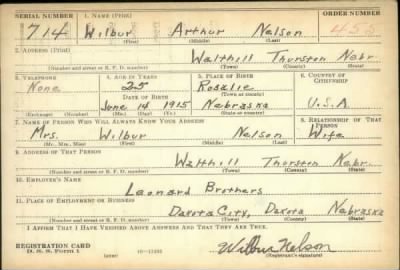 SERIAL NUMBER 1. NAME (Print) ORDER NUMBER
714 Wilbur Arthur Nelson 455
(First) (Middle) (Last)
2. ADDRESS (Print)
Walthill Thurston Nebr.
(Number and street or R. F. D. number) (Town) (County) (State)
3. TELEPHONE 4. AGE IN YEARS 5. PLACE OF BIRTH 6. COUNTRY OF CITIZENSHIP
None 25 Rosalie
DATE OF BIRTH (Town or county)
June 14 1915 Nebraska U.S.A
(Exchange) (Number) (Mo.) (Day) (Yr.) (State or country)
7. NAME OF PERSON WHO WILL ALWAYS KNOW YOUR ADDRESS 8. RELATIONSHIP OF THAT PERSON
Mrs. Wilbur Nelson Wife
(Mr., Mrs., Miss) (First) (Middle) (Last)
9. ADDRESS OF THAT PERSON
Walthill Thurston Nebr.
(Number and street or R. F. D. number) (Town) (County) (State)
10. EMPLOYER'S NAME
Leonard Brothers
11. PLACE OF EMPLOYMENT OR BUSINESS
Dakota City, Dakota Nebraska
(Number and street or R. F. D. number) (Town) (County) (State)
I AFFIRM THAT I HAVE VERIFIED ABOVE ANSWERS AND THAT THEY ARE TRUE.
REGISTRATION CARD
D. S. S. FORM 1 Wilbur Nelson
(Registrant's signature)